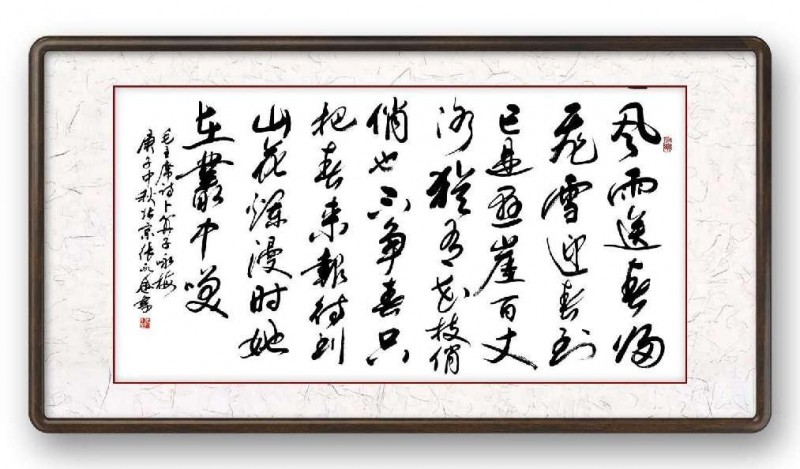 风雨送春归
飞雪迎春到
已是悬崖百丈
冰犹有花枝俏
俏也不争春只
把春来报待到
山花烂漫时她
在叢中笑
毛主席诗卜算子咏梅
庚子中秋 京张 书